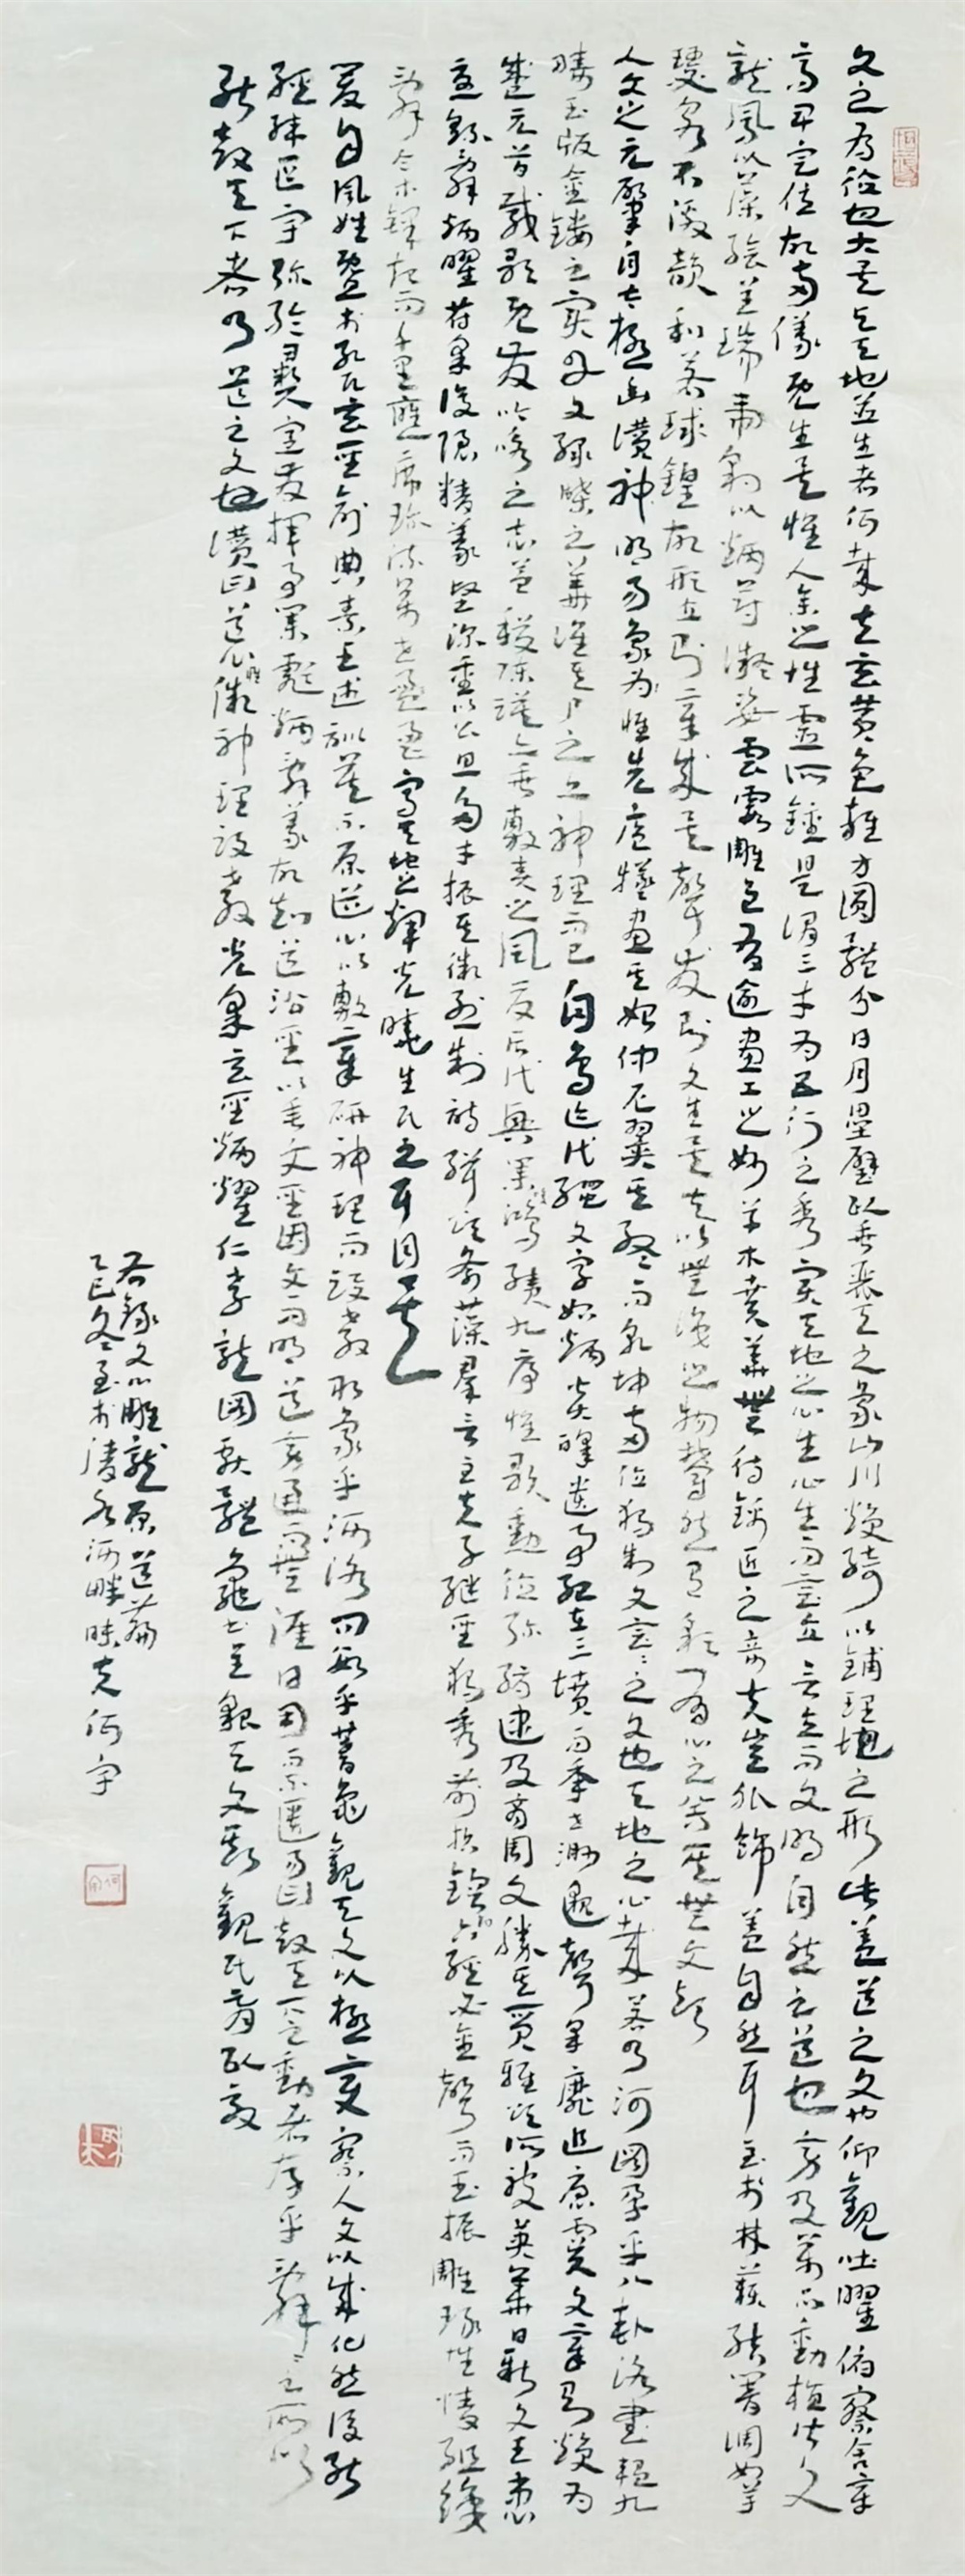 文之為德也大矣與天地並生者何哉夫玄黃色雜方圓體分日月疊璧以垂麗天之象山川煥綺以鋪理地之形此蓋道之文也仰觀吐曜俯察含章
高卑定位故兩儀既生矣惟人參之性靈所鍾是謂三才為五行之秀實天地之心生心生而言立言立而文明自然之道也旁及萬品動植皆文
龍鳳以藻繪呈瑞虎豹以炳蔚凝姿雲霞雕色有逾畫工之妙草木賁華無待錦匠之奇夫豈外飾蓋自然耳至於林籟結響調如竽
瑟泉石激韻和若球鍠故形立則章成矣聲發則文生矣夫以無識之物鬱然有彩有心之器其無文歟
人文之元肇自太極幽讚神明易象為惟先庖犧畫其始仲尼翼其終而乾坤兩位獨制文言言之文也天地之心哉若乃河圖孕乎八卦洛書韞九
疇玉版金鏤之實丹文綠牒之華誰其尸之亦神理而已自鳥迹代繩文字始炳炎皞遺事紀在三墳而年世渺邈聲采靡追唐虞文章則煥為
盛元首載歌既發吟詠之志益稷陳謨亦垂敷奏之風夏后代興業峻鴻績九序惟歌勳德彌縟逮及商周文勝其質雅頌所被英華日新文王患
憂繇辭炳曜符采複隱精義堅深重以公旦多才振其徽烈制詩緝頌斧藻羣言至夫子繼聖獨秀前哲鎔鈞六經必金聲而玉振雕琢性情組織
辭令木鐸起而千里應席珍流萬世響寫天地之輝光曉生民之耳目矣
爰自風姓暨於孔氏玄聖創典素王述訓莫不原道心以敷章研神理而設教取象乎河洛問數乎蓍龜觀天文以極變察人文以成化然後能
經緯區宇彌綸彝憲發揮事業彪炳辭義故知道沿聖以垂文聖因文而明道旁通而無涯日用而不匱易曰鼓天下之動者存乎辭辭之所以
能鼓天下者乃道之文也讚曰道心惟微神理設教光采玄聖炳耀仁孝龍圖獻體龜書呈貌天文斯觀民胥以效
右錄文心雕龍原道篇
乙巳冬至於水河畔味夫何宇